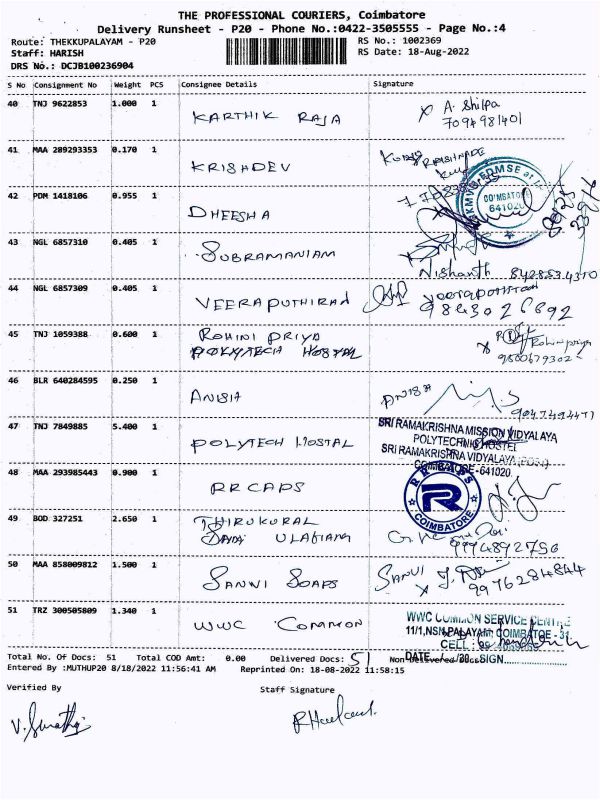 THE PROFESSIONAL COURIERS, Coimbatore
Delivery Runsheet - P20 - Phone No.:0422-3505555 - Page No.:4
Route: THEKKUPALAYAM - P20 RS No.: 1002369
Staff: HARISH RS Date: 18-Aug-2022
DRS No.: DCJB100236904
S No Consignment No Weight PCS Consignee Details Signature
40 TNJ 9622853 1.000 1 KARTHIK RAJA x A. Shilpa
7094981401
41 MAA 289293353 0.170 1 KRISHDEV
42 PDM 1418106 0.955 1 DHEESHA COIMBATORE 641020
43 NGL 6857310 0.405 1 SUBRAMANIAM
Nishanth 8428534310
44 NGL 6857309 0.405 1 VEERAPUTHIRAN Veeraputhiran
9843026692
45 TNJ 1059388 0.600 1 ROHINI PRIYA
POLYTECH HOSTAL x Rohini priya
9500679302
46 BLR 640284595 0.250 1 ANISHA ANISHA
47 TNJ 7849885 5.400 1 POLYTECH HOSTAL SRI RAMAKRISHNA MISSION VIDYALAYA
POLYTECHNIC HOSTEL
SRI RAMAKRISHNA VIDYALAYA (POST)
COIMBATORE-641020
48 MAA 293985443 0.900 1 RR CAPS RR CAPS R COIMBATORE
49 BOD 327251 2.650 1 THIRUKURAL
ULAGIAM
9994892796
50 MAA 858009812 1.500 1 SANWI SOAPS SANWI
x 9976284844
51 TRZ 300505809 1.340 1 WWC COMMON WWC COMMON SERVICE CENTRE
11/1,NSN.PALAYAM, COIMBATOE - 31
CELL :
DATE..../..../20 SIGN..............
Total No. Of Docs: 51 Total COD Amt: 0.00 Delivered Docs: 51 Non-Delivered Docs:
Entered By :MUTHUP20 8/18/2022 11:56:41 AM Reprinted On: 18-08-2022 11:58:15
Verified By Staff Signature